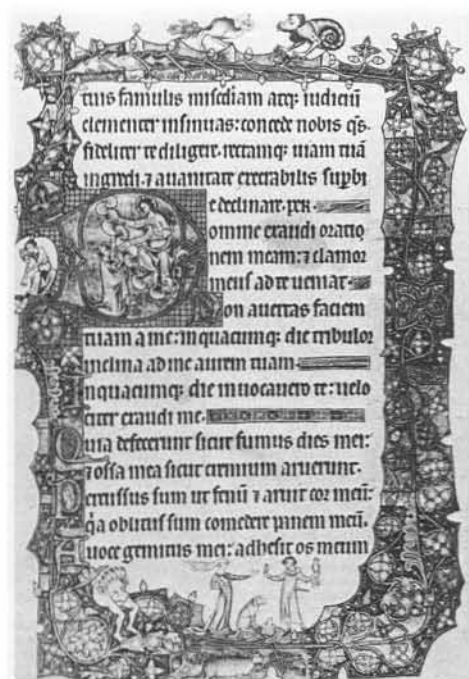 tuis famulis misc̄diam atq; iudiciū
clementer insinuas: concede nobis q̄s.
fideliter te diligere. rectamq; uiam tuā
ingredi. ⁊ a uanitate execrabilis sup̲bi
e declinare. per.
omine exaudi oratio
nem meam: ⁊ clamor
meus ad te ueniat.
on auertas faciem
tuam a me: in quacumq; die tribulor
inclina ad me aurem tuam.
n quacumq; die inuocauero te: uelo
citer exaudi me.
Quia defecerunt sicut fumus dies mei:
⁊ ossa mea sicut cremium aruerunt.
Percussus sum ut fenū ⁊ aruit cor meū:
q̇a oblitus sum comedere panem meū.
uoce gemitus mei: adhesit os meum